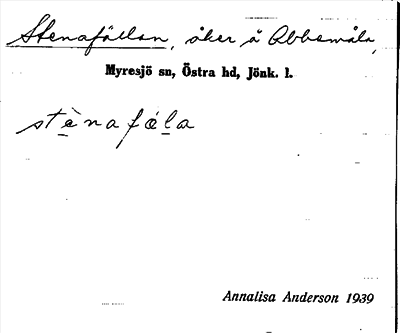 Stenafållan, åker å Abbemåla,
Myresjö sn, Östra hd, Jönk. l.
stènafåla
Annalisa Anderson 1939